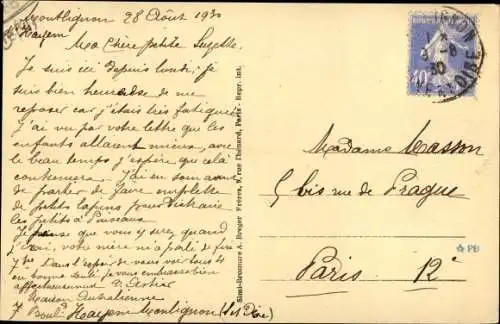 Montlignon 28 Août 1930
Hayem
Ma chère petite Suzette
Je suis ici depuis lundi, je
suis bien heureuse de me
reposer car j'étais très fatiguée
J'ai vu par votre lettre que les
enfants allaient mieux, avec
le beau temps j'espère que cela
continuera. J'ai en
de parler de faire emplette
de petits lapins pour
les petits à Puiseaux
Je pense que vous y serez quand
j'irai, votre mère m'a parlé de
7bre Dans l'espoir de vous voir tous
en bonne santé je vous embrasse bien
affectueusement
Maison
7 Boul. Hayem Montlignon (Set Oise)
Simi-Bromure A. Breger Frères, 9, rue Thénard, Paris - Repr. int.
40
30
Madame Masson
5 bis rue de Prague
Paris 12e
PB